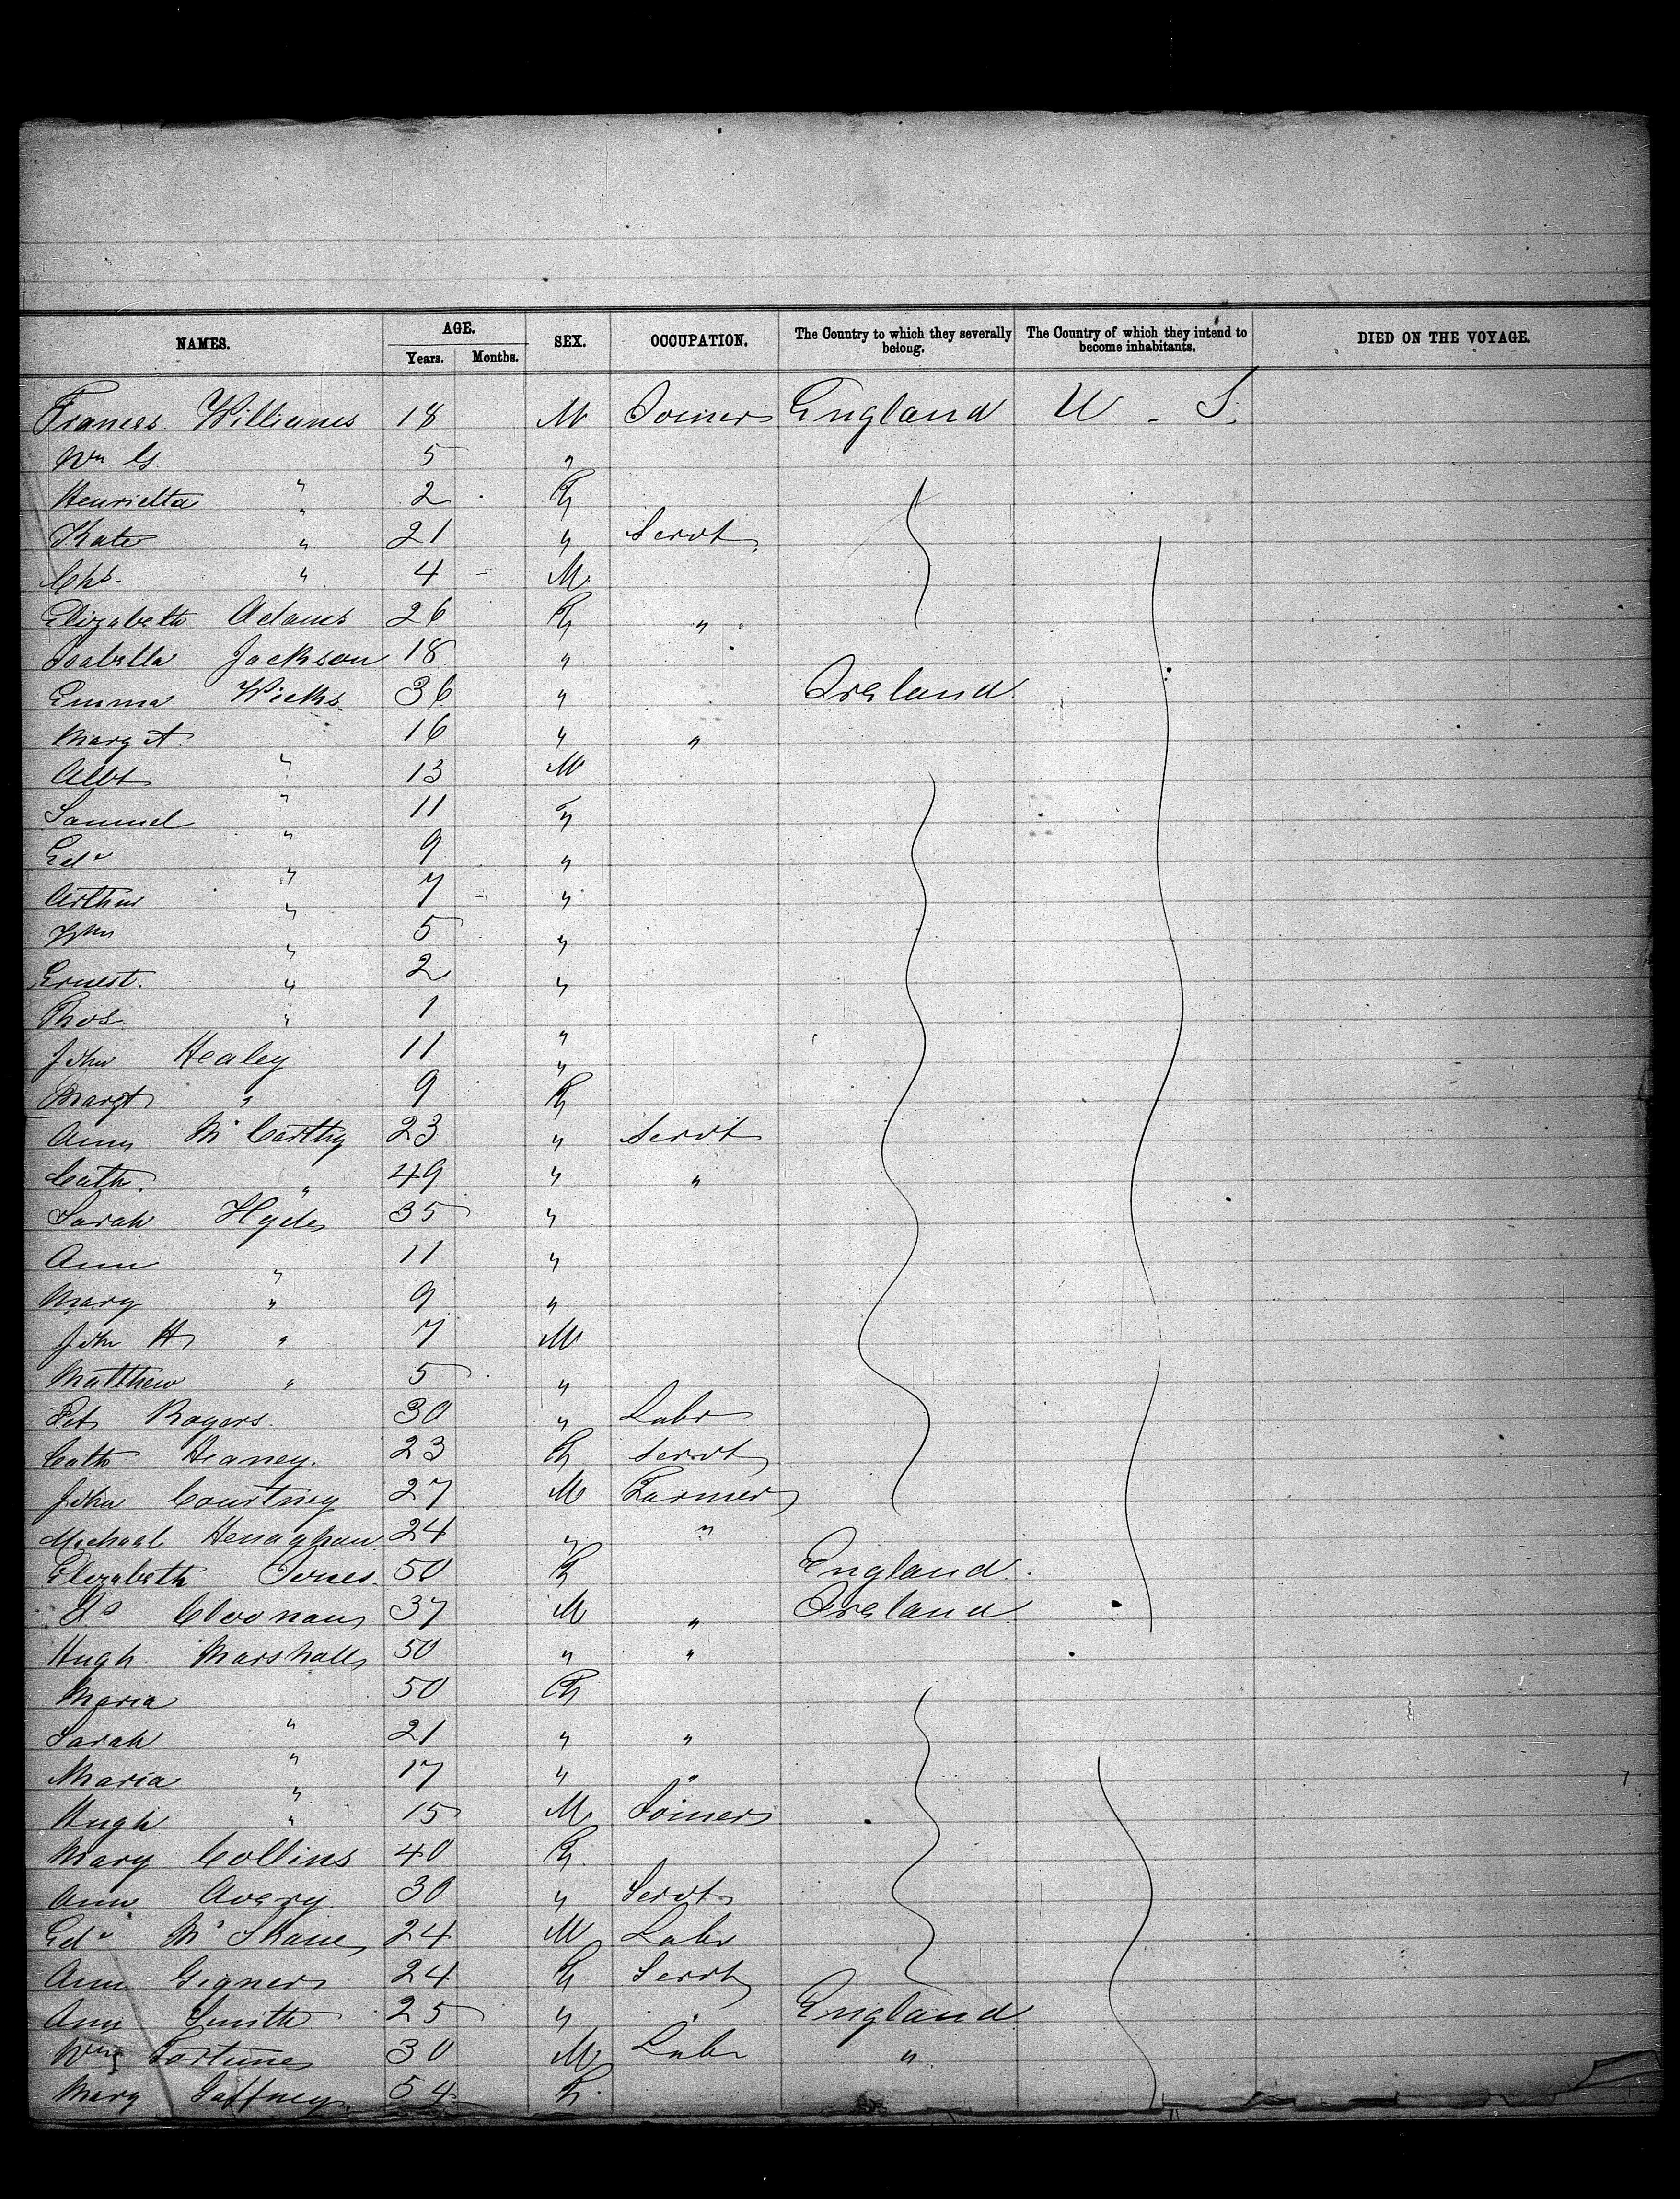 NAMES. AGE. Years. Months. SEX. OCCUPATION. The Country to which they severally belong. The Country of which they intend to become inhabitants. DIED ON THE VOYAGE.
Frances Williams 18 M Joiner England U. S.
Wm G " 5 "
Henrietta " 2 F
Kate " 21 " Servt
Chs. " 4 M
Elizabeth Adams 26 F "
Isabella Jackson 18 "
Emma Wicks 36 " Ireland
Margt. " 16 " "
Albt " 13 M
Samuel " 11 "
Edw " 9 "
Arthur " 7 "
Wm " 5 "
Ernest. " 2 "
Thos. " 1 "
John Healey 11 "
Margt " 9 F
Ann McCarthy 23 " Servt
Cath. " 49 " "
Sarah Hyde 35 "
Ann " 11 "
Mary " 9 "
John H " 7 M
Matthew " 5 "
Pet Rogers. 30 " Labr
Cath Heaney. 23 F Servt
John Courtney 27 M Farmer
Michael Henaghan 24 " "
Elizabeth 50 F England.
Cloonan 37 M " Ireland
Hugh Marshall 50 " "
Maria " 50 F
Sarah " 21 " "
Maria " 17 " "
Hugh " 15 M Joiner
Mary Collins 40 F
Ann Avery. 30 " Servt
Edw McShane 24 M Labr
Ann 24 F Servt
Ann Smith 25 " " England
Wm Fortune 30 M Labr "
Mary Gaffney. 54 F.